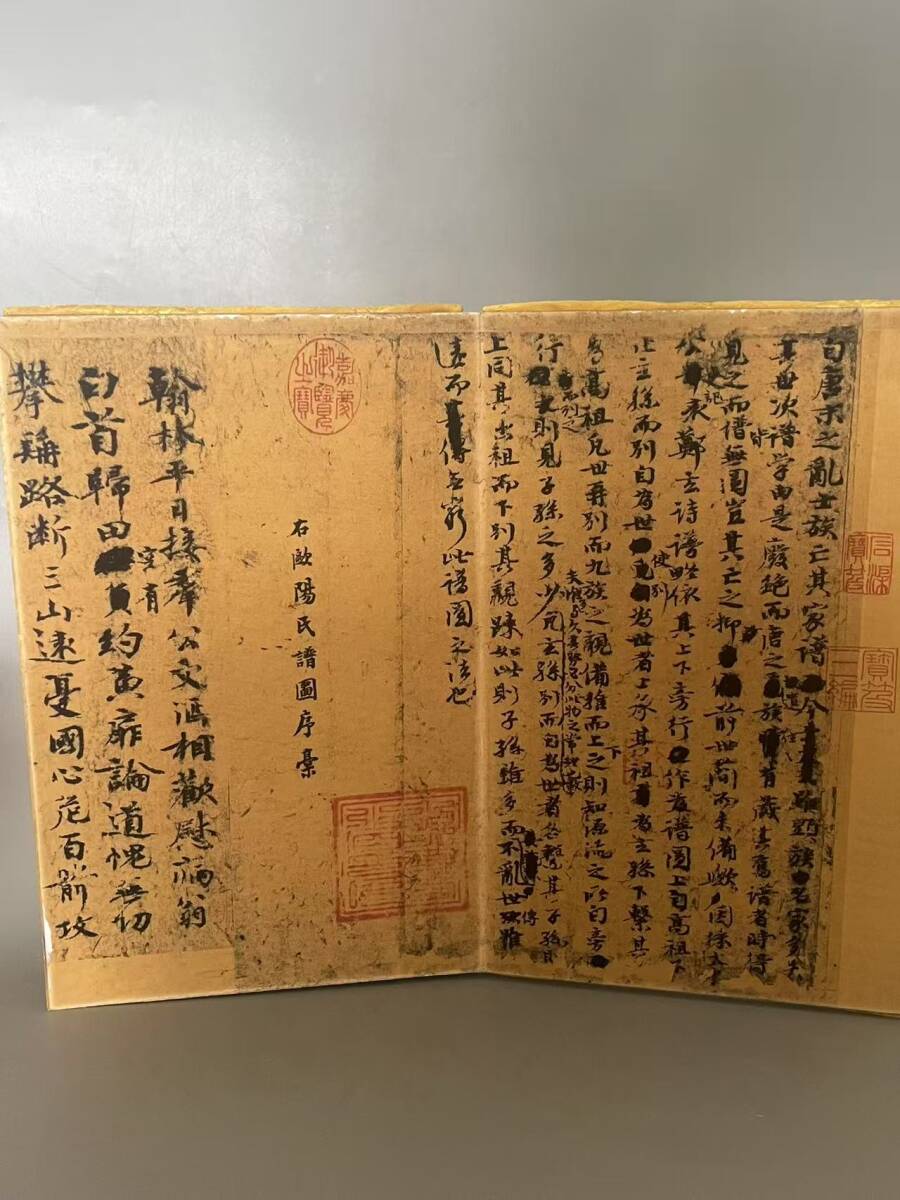 自唐末之亂士族亡其家譜今雖顯族名家多失
其世次譜學由是廢絶而唐之遺族往往有藏其舊譜者時得
見之而譜皆無圖豈其亡之抑前世簡而未備歟因採太史
公史記表鄭玄詩譜略依其上下旁行作為譜圖上自高祖下
止玄孫而別自為世使別為世者上承其祖為玄孫下繫其
為高祖凡世再別而九族之親備推而上之則知源流之所自旁
行而列之則見子孫之多少夫惟多與久其勢必分此物之常理也故凡玄孫別而自為世者各繫其子孫
上同其出祖而下別其親疎如此則子孫雖多而不亂世傳雖
遠而無窮此譜圖之法也
右歐陽氏譜圖序稾
嘉慶御覽之寶
翰林平日接羣公文酒相歡慰病翁
白首歸田空有約黃扉論道愧無功
攀髯路斷三山遠憂國心危百箭攻